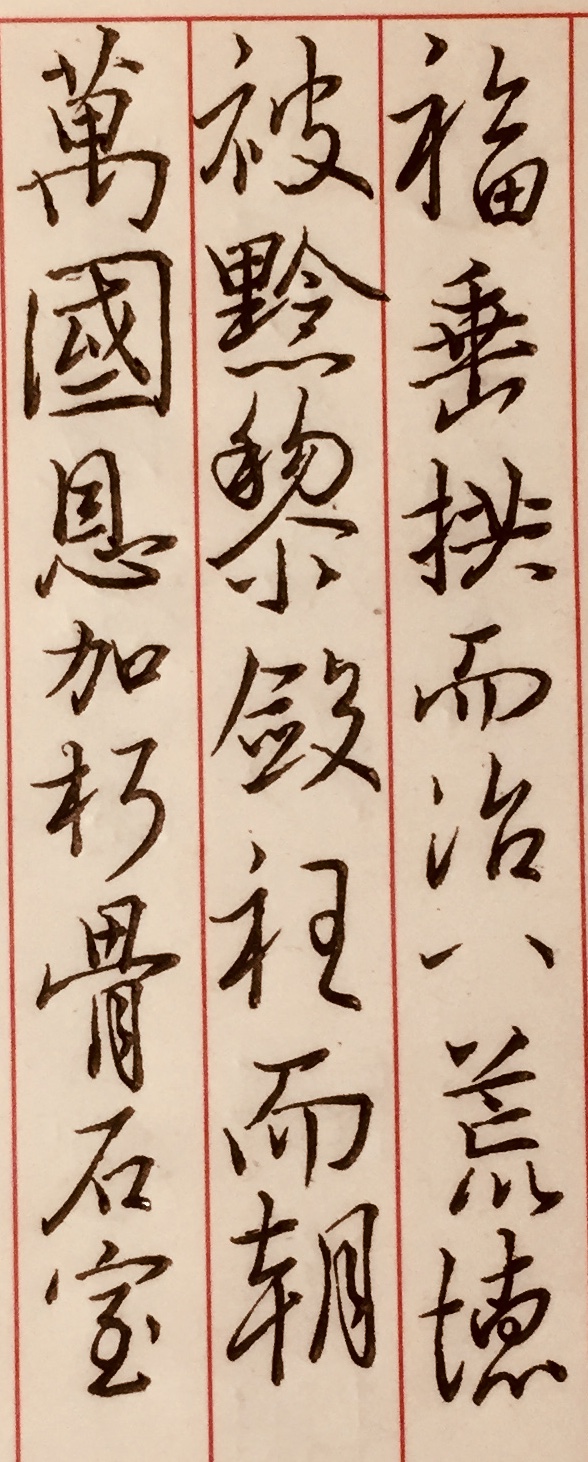 福垂拱而治八荒德
被黔黎斂衽而朝
萬國恩加朽骨石室